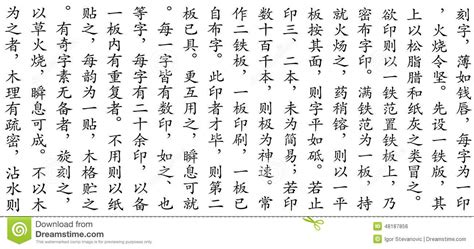 刻字，薄如钱唇，每字为一印
，火烧令坚。先设一铁板，其
上以松脂腊和纸灰之类冒之。
欲印则以一铁范置铁板上，乃
密布字印。满铁范为一板，持
就火炀之，药稍镕，则以一平
板按其面，则字平如砥。若止
印三、二本，未为简易；若印
数十百千本，则极为神速。常
作二铁板，一板印刷，一板已
自布字。此印者才毕，则第二
板已具。更互用之，瞬息可就
。每一字皆有数印，如之、也
等字，每字有二十余印，以备
一板内有重复者。不用则以纸
贴之，每韵为一贴，木格贮之
。有奇字素无备者，旋刻之，
以草火烧，瞬息可成。不以木
为之者，木理有疏密，沾水则
Download from
Dreamstime.com
This watermarked comp image is for previewing purposes only.
48187856
Igor Stevanovic | Dreamstime.com